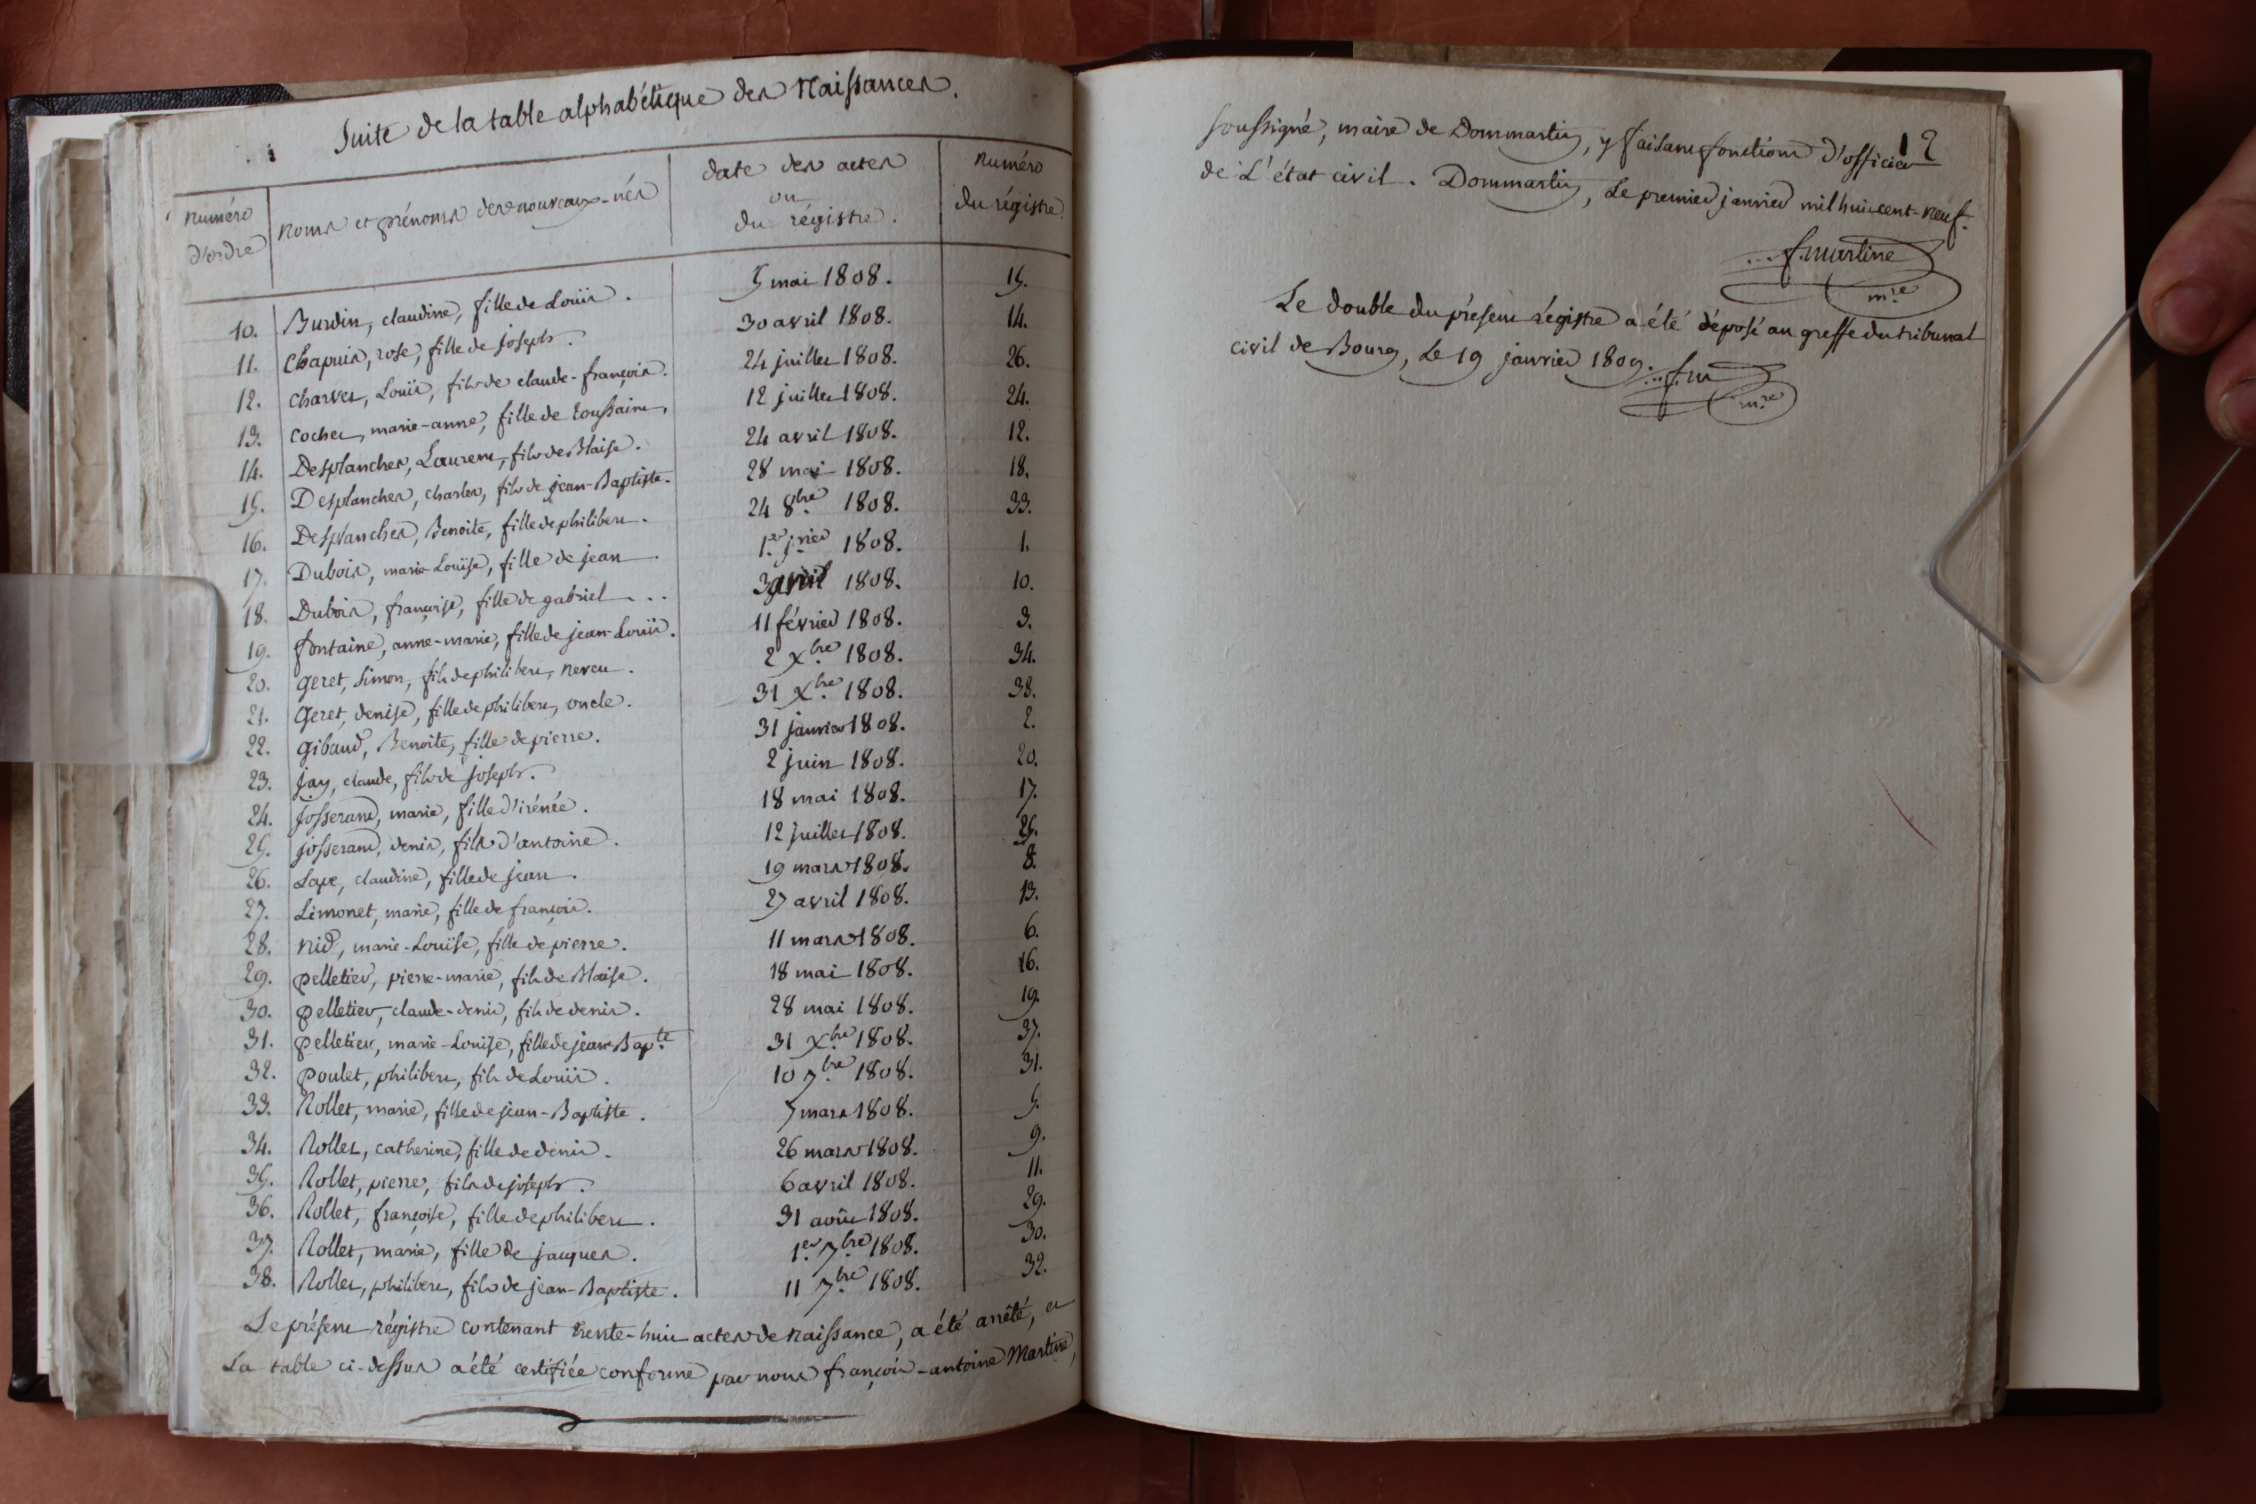 Suite de la table alphabétique des Naissances.
numéro d'ordre | noms et prénoms des nouveaux-nés | date des actes ou du régistre. | numéro du régistre.
10. Burdin, claudine, fille de Louis. 5 mai 1808. 15.
11. Chapuis, rose, fille de joseph. 30 avril 1808. 14.
12. Charvet, Louis, fils de claude-françois. 24 juillet 1808. 26.
13. Cochet, marie-anne, fille de toussaint. 12 juillet 1808. 24.
14. Desplanches, Laurent, fils de Blaise. 24 avril 1808. 12.
15. Desplanches, charles, fils de jean-Baptiste. 28 mai 1808. 18.
16. Desplanches, Benoite, fille de philibert. 24 8.bre 1808. 33.
17. Dubois, marie-Louise, fille de jean 1.er j.vier 1808. 1.
18. Dubois, françoise, fille de gabriel . . . 3 avril 1808. 10.
19. fontaine, anne-marie, fille de jean-Louis. 11 février 1808. 3.
20. Geret, Simon, fils de philibert, neveu. 2 X.bre 1808. 34.
21. Geret, denise, fille de philibert, oncle. 31 X.bre 1808. 38.
22. Gibaud, Benoite, fille de pierre. 31 janvier 1808. 2.
23. Jay, claude, fils de joseph. 2 juin 1808. 20.
24. Josserand, marie, fille d'irénée. 18 mai 1808. 17.
25. josserand, denis, fils d'antoine. 12 juillet 1808. 25.
26. Lape, claudine, fille de jean. 19 mars 1808. 8.
27. Limonet, marie, fille de françois. 27 avril 1808. 13.
28. nid, marie-Louise, fille de pierre. 11 mars 1808. 6.
29. pelletier, pierre-marie, fils de Blaise. 18 mai 1808. 16.
30. pelletier, claude-denis, fils de denis. 28 mai 1808. 19.
31. pelletier, marie-Louise, fille de jean-Bap.te 31 X.bre 1808. 37.
32. poulet, philibert, fils de Louis. 10 7.bre 1808. 31.
33. Rollet, marie, fille de jean-Baptiste. 5 mars 1808. 5.
34. Rollet, catherine, fille de denis. 26 mars 1808. 9.
35. Rollet, pierre, fils de joseph. 6 avril 1808. 11.
36. Rollet, françoise, fille de philibert. 31 août 1808. 29.
37. Rollet, marie, fille de jacques. 1.er 7.bre 1808. 30.
38. Rollet, philibert, fils de jean-Baptiste. 11 7.bre 1808. 32.
Le présent régistre contenant trente-huit actes de naissance, a été arrêté, et
La table ci-dessus a été certifiée conforme par nous françois-antoine Martine,
12
soussigné, maire de Dommartin, y faisant fonctions d'officier
de L'état civil. Dommartin, Le premier janvier mil huit cent-neuf.
f. martine
m.re
Le double du présent régistre a été déposé au greffe du tribunal
civil de Bourg, Le 19 janvier 1809.
f. m
m.re